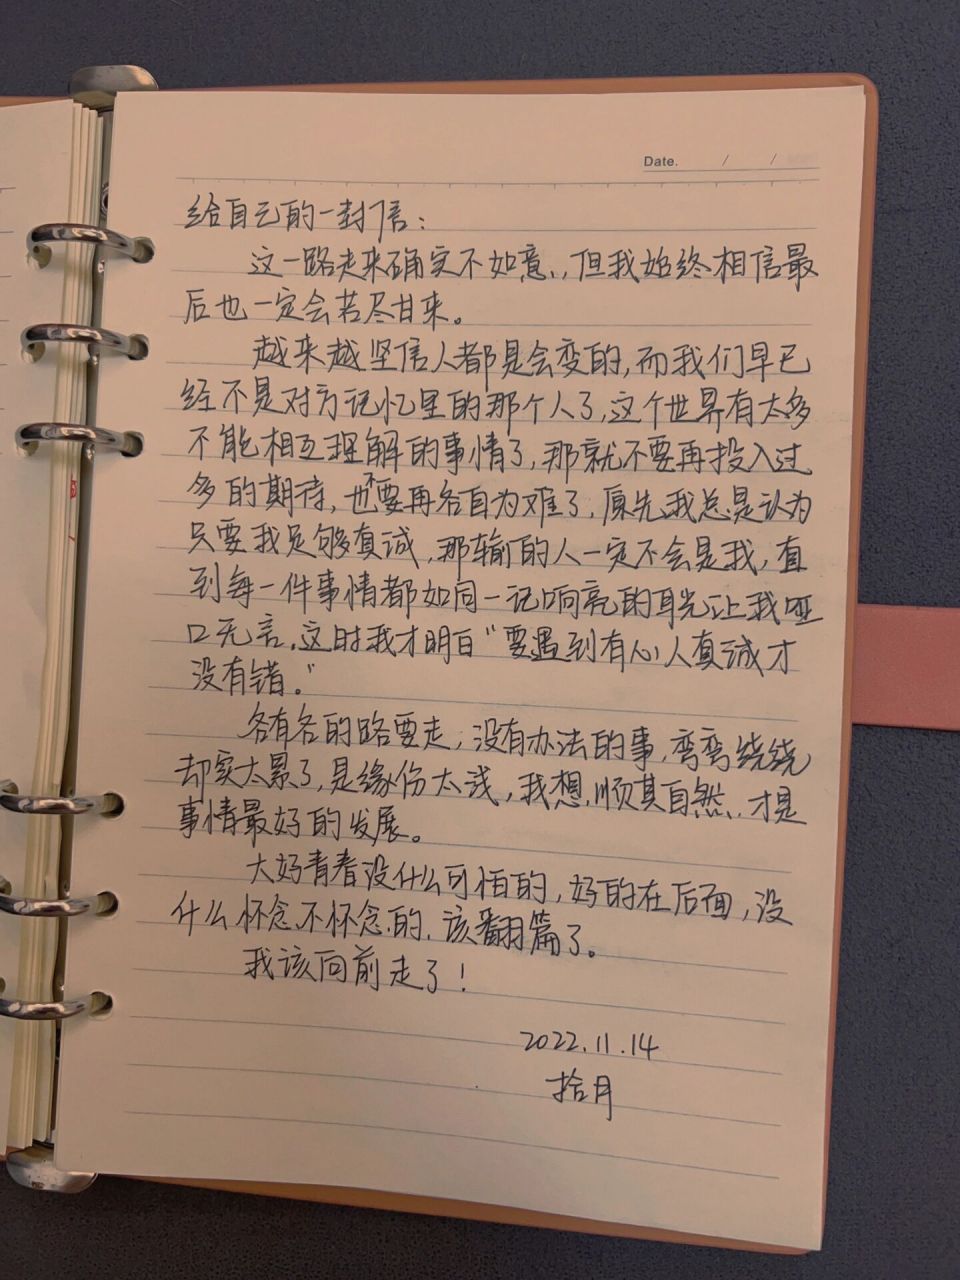 Date. / /
给自己的一封信：
这一路走来确实不如意，但我始终相信最
后也一定会苦尽甘来。
越来越坚信人都是会变的，而我们早已
经不是对方记忆里的那个人了，这个世界有太多
不能相互理解的事情了，那就不要再投入过
多的期待，也不要再各自为难了，原先我总是认为
只要我足够真诚，那输的人一定不会是我，直
到每一件事情都如同一记响亮的耳光让我哑
口无言，这时我才明白“要遇到有心人真诚才
没有错。”
各有各的路要走，没有办法的事，弯弯绕绕
却实太累了，是缘份太浅，我想，顺其自然，才是
事情最好的发展。
大好青春没什么可怕的，好的在后面，没
什么怀念不怀念的，该翻篇了。
我该向前走了！
2022.11.14
拾月